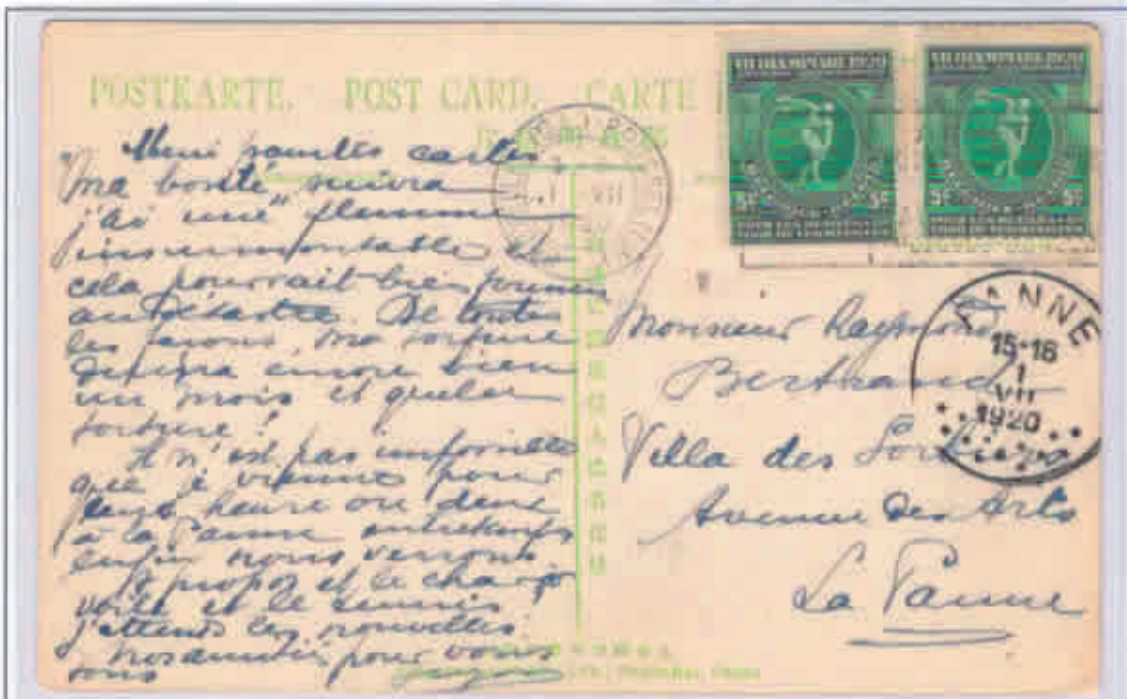 POSTKARTE. POST CARD. CARTE
VII OLYMPIADE 1920
VII OLYMPIADE 1920
5c 5c
5c 5c
PANNE
15-16
1
VII
1920
1 VII
cartes
ma bonté suivra
j'ai une flemme
insurmontable et
cela pourrait bien
au désastre. De toutes
les façons, ma torture
durera encore bien
un mois et quelle
torture!
Il n'est pas impossible
que je vienne pour
heure ou deux
à la Panne
enfin nous verrons.
A propos et le char à
voile et le tennis
j'attends les nouvelles.
pour vous
tous
Monsieur Raymond
Bertrand
Villa des
Avenue des Arts
La Panne